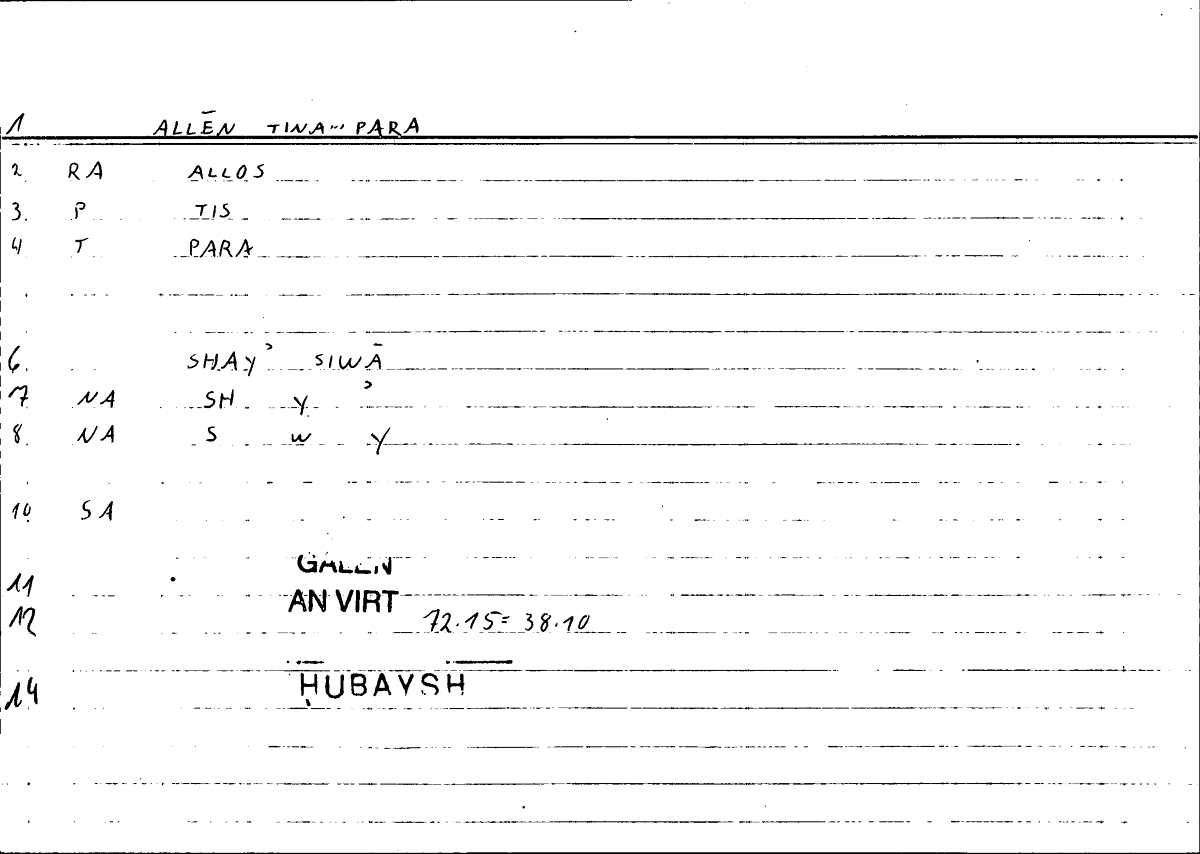 1 ALLĒN TINA... PARA
2. RA ALLOS
3. P TIS
4 T PARA
6. SHAYʾ SIWĀ
7 NA SH Y ʾ
8. NA S W Y
10. SA
11 GALEN
12 AN VIRT 72.15 = 38.10
14 ḤUBAYSH